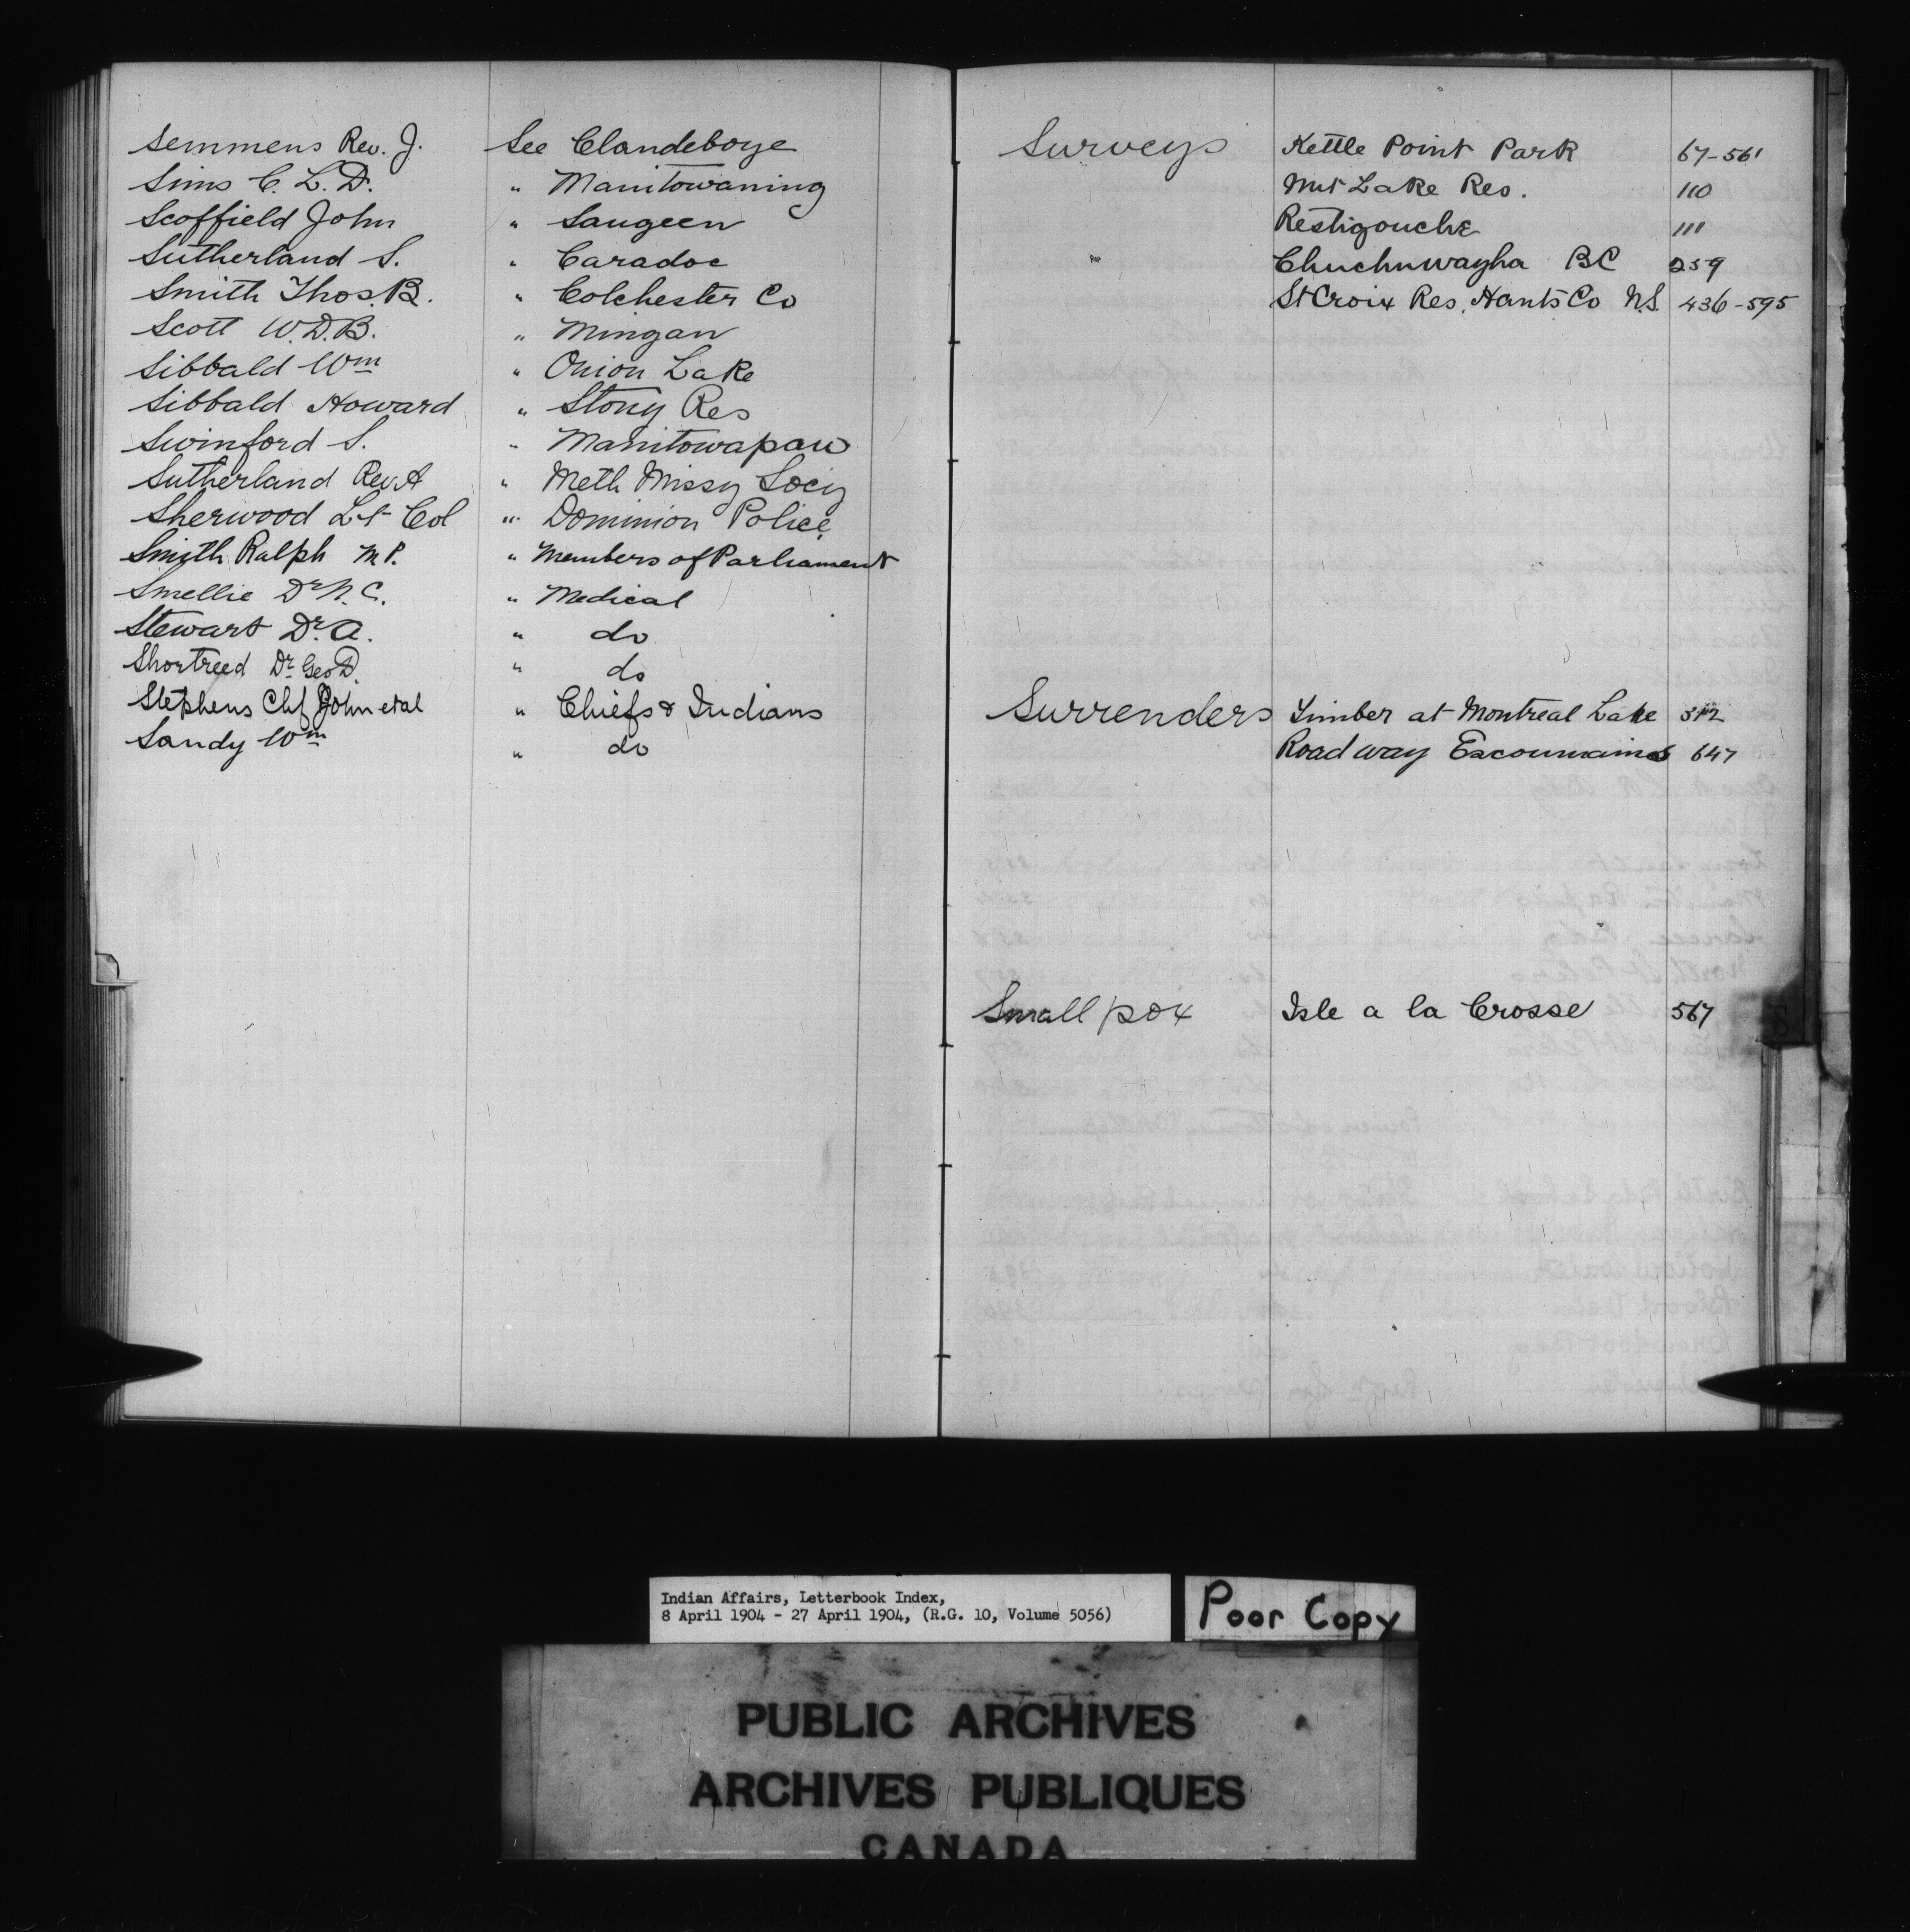 Semmens Rev. J. See Clandeboye
Sims C. L. D. " Manitowaning
Scoffield John " Saugeen
Sutherland S. " Caradoc
Smith Thos. B. " Colchester Co
Scott W. D. B. " Mingan
Sibbald Wm " Onion Lake
Sibbald Howard " Stony Res
Swinford S. " Manitowapaw
Sutherland Rev. A " Meth Missy Socy
Sherwood Lt Col " Dominion Police
Smith Ralph M. P. " Members of Parliament
Smellie Dr. N. C. " Medical
Stewart Dr. A. " do
Shortreed Dr. Geo D. " do
Stephens Chf John et al " Chiefs & Indians
Sandy Wm " do
Surveys Kettle Point Park 67-561
Nut Lake Res. 110
Restigouche 111
" Chuchuwayha BC 259
St Croix Res. Hants Co N.S. 436-595
Surrenders Timber at Montreal Lake 312
Roadway Escoumains 647
Small pox Isle a la Crosse 567
S
Indian Affairs, Letterbook Index,
8 April 1904 - 27 April 1904, (R.G. 10, Volume 5056)
Poor Copy
PUBLIC ARCHIVES
ARCHIVES PUBLIQUES
CANADA